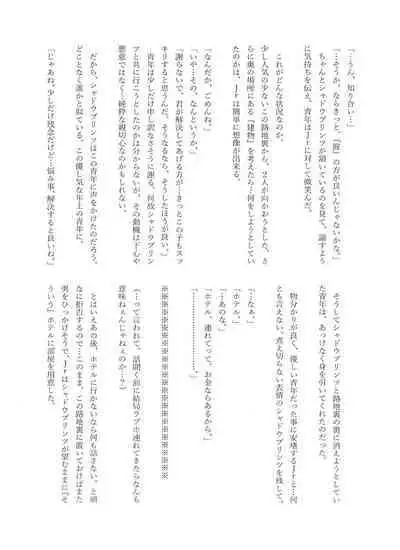 「…うん、知り合い…」
「…そうか、ならきっと、『彼』の方が良いんじゃないかな。」
ちゃんとシャドウプリンツが頷いているのを見て、諭すよう
に気持ちを伝え、青年はＪｒに対して微笑んだ。
これがどんな状況なのか。
少し人気の少ないこの路地裏から、２人が向かおうとした、さ
らに奥の場所にある『建物』を考えたら…何をしようとしてい
たのかは、Ｊｒは簡単に想像が出来る。
「なんだか、ごめんね。」
「いや…その、なんというか。」
「謝らないで、君が解決してあげる方が…きっとこの子もスッ
キリすると思うんだ、そうなるなら、そうしたほうが良い。」
青年は少しだけ申し訳なさそうに謝る、何故シャドウプリン
ツと共に行こうとしたのかは分からないが、その動機は下心や
悪意ではなく…純粋な親切心なのかもしれない。
だから、シャドウプリンツはこの青年に声をかけたのだろう。
どことなく誰かと似ている、この優し気な年上の青年に。
「じゃあね、少しだけ残念だけど…悩み事、解決すると良いね。」
そうしてシャドウプリンツと路地裏の裏に消えようとしてい
た青年は、あっけなく身を引いてくれたのだった。
物分かりが良く、優しい青年だった事に安堵するＪｒと…何
とも言えない、煮え切らない表情のシャドウプリンツを残して。
「…なぁ。」
「ホテル。」
「…あのな。」
「ホテル、連れてって、お金ならあるから。」
「………………………。」
※※※※※※※※※※※※※※※※※※※※
(…って言われて、話聞く前に結局ラブホ連れてきたらなんも
意味ねぇんじゃねぇのか…？)
とはいえあの後、ホテルに行かないなら何も話さない、と頑
なに拒否するので…このまま、この路地裏に置いておけばまた
男をひっかけそうで、Ｊｒはシャドウプリンツが望むまま『そ
ういう』ホテルに部屋を用意した。